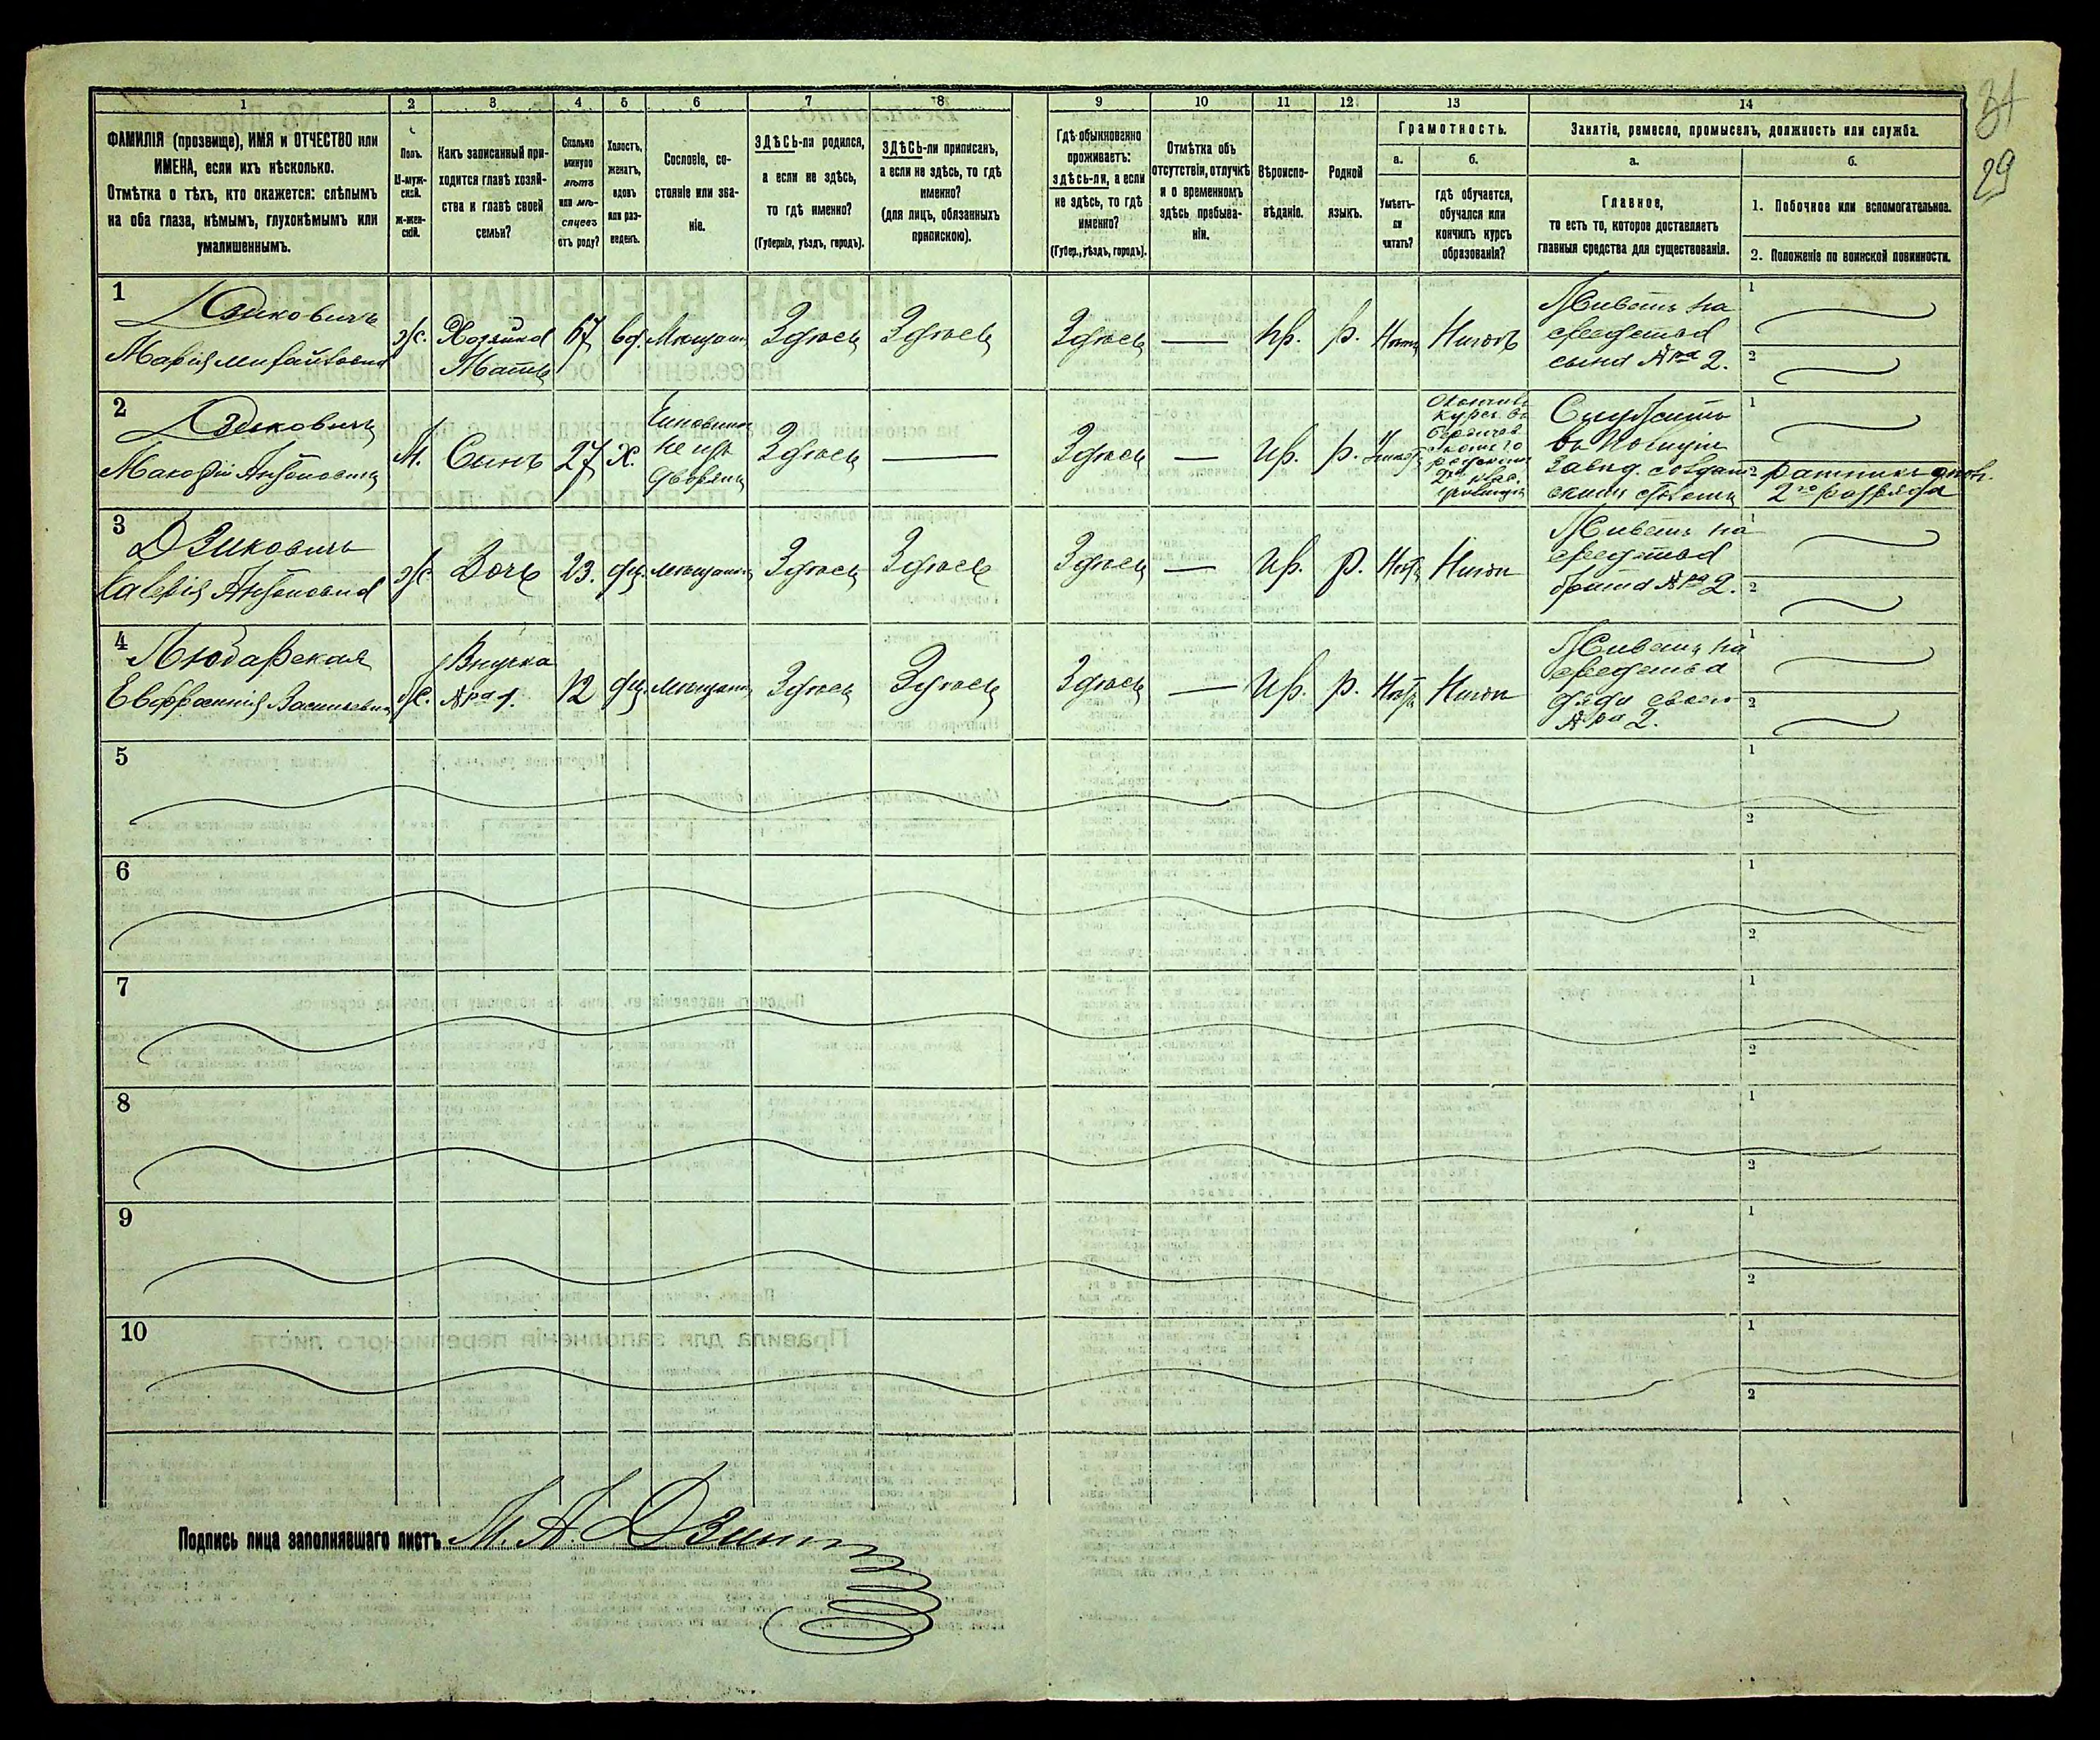 31
29
1 2 3 4 5 6 7 8 9 10 11 12 13 14
ФАМИЛІЯ (прозвище), ИМЯ и ОТЧЕСТВО или
ИМЕНА, если ихъ нѣсколько.
Отмѣтка о тѣхъ, кто окажется: слѣпымъ
на оба глаза, нѣмымъ, глухонѣмымъ или
умалишеннымъ.
Полъ.
М-муж-
ской.
ж-жен-
скій.
Какъ записанный при-
ходится главѣ хозяй-
ства и главѣ своей
семьи?
Сколько
минуло
лѣтъ
или мѣ-
сяцевъ
отъ роду?
Холостъ,
женатъ,
вдовъ
или раз-
веденъ.
Сословіе, со-
стояніе или зва-
ніе.
ЗДѢСЬ-ли родился,
а если не здѣсь,
то гдѣ именно?
(Губернія, уѣздъ, городъ).
ЗДѢСЬ-ли приписанъ,
а если не здѣсь, то гдѣ
именно?
(для лицъ, обязанныхъ
припискою).
Гдѣ обыкновенно
проживаетъ:
здѣсь-ли, а если
не здѣсь, то гдѣ
именно?
(Губер., уѣздъ, городъ).
Отмѣтка объ
отсутствіи, отлучкѣ
и о временномъ
здѣсь пребыва-
ніи.
Вѣроиспо-
вѣданіе.
Родной
языкъ.
Грамотность.
а.
Умѣетъ-
ли
читать?
б.
гдѣ обучается,
обучался или
кончилъ курсъ
образованія?
Занятіе, ремесло, промыселъ, должность или служба.
а.
Главное,
то есть то, которое доставляетъ
главныя средства для существованія.
б.
1. Побочное или вспомогательное.
2. Положеніе по воинской повинности.
1
Дзиковичъ
Марія Михайловна
ж. Хозяйка 67 вд. Мѣщан. Здѣсь Здѣсь Здѣсь — пр. р. Нѣтъ Нигдѣ
Мать
Живетъ на
средства
сына № 2.
1
2
2
Дзиковичъ
Антоновичъ
М. Сынъ 27 Х.
Чиновникъ
не изъ
дворянъ
Здѣсь — Здѣсь — пр. р.
курсъ въ
Служитъ
въ
1
2 ратникъ опол.
2го разряда
3
Дзиковичъ
Антоновна
ж. Дочь 23. дѣв. мѣщанка Здѣсь Здѣсь Здѣсь — пр. р. Нѣтъ Нигдѣ
Живетъ на
средства
брата № 2.
1
2
4
Любарская
Евфросинія Васильевна
ж.
Внучка
№ 1.
12 дѣв. мѣщан. Здѣсь Здѣсь Здѣсь — пр. р. Нѣтъ Нигдѣ
Живетъ на
средства
дяди своего
№ 2.
1
2
5 1
2
6 1
2
7 1
2
8 1
2
9 1
2
10 1
2
Подпись лица заполнявшаго листъ М. А. Дзик